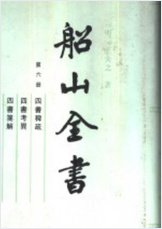 船山全書
第六册
四書稗疏
四書考異
四書箋解